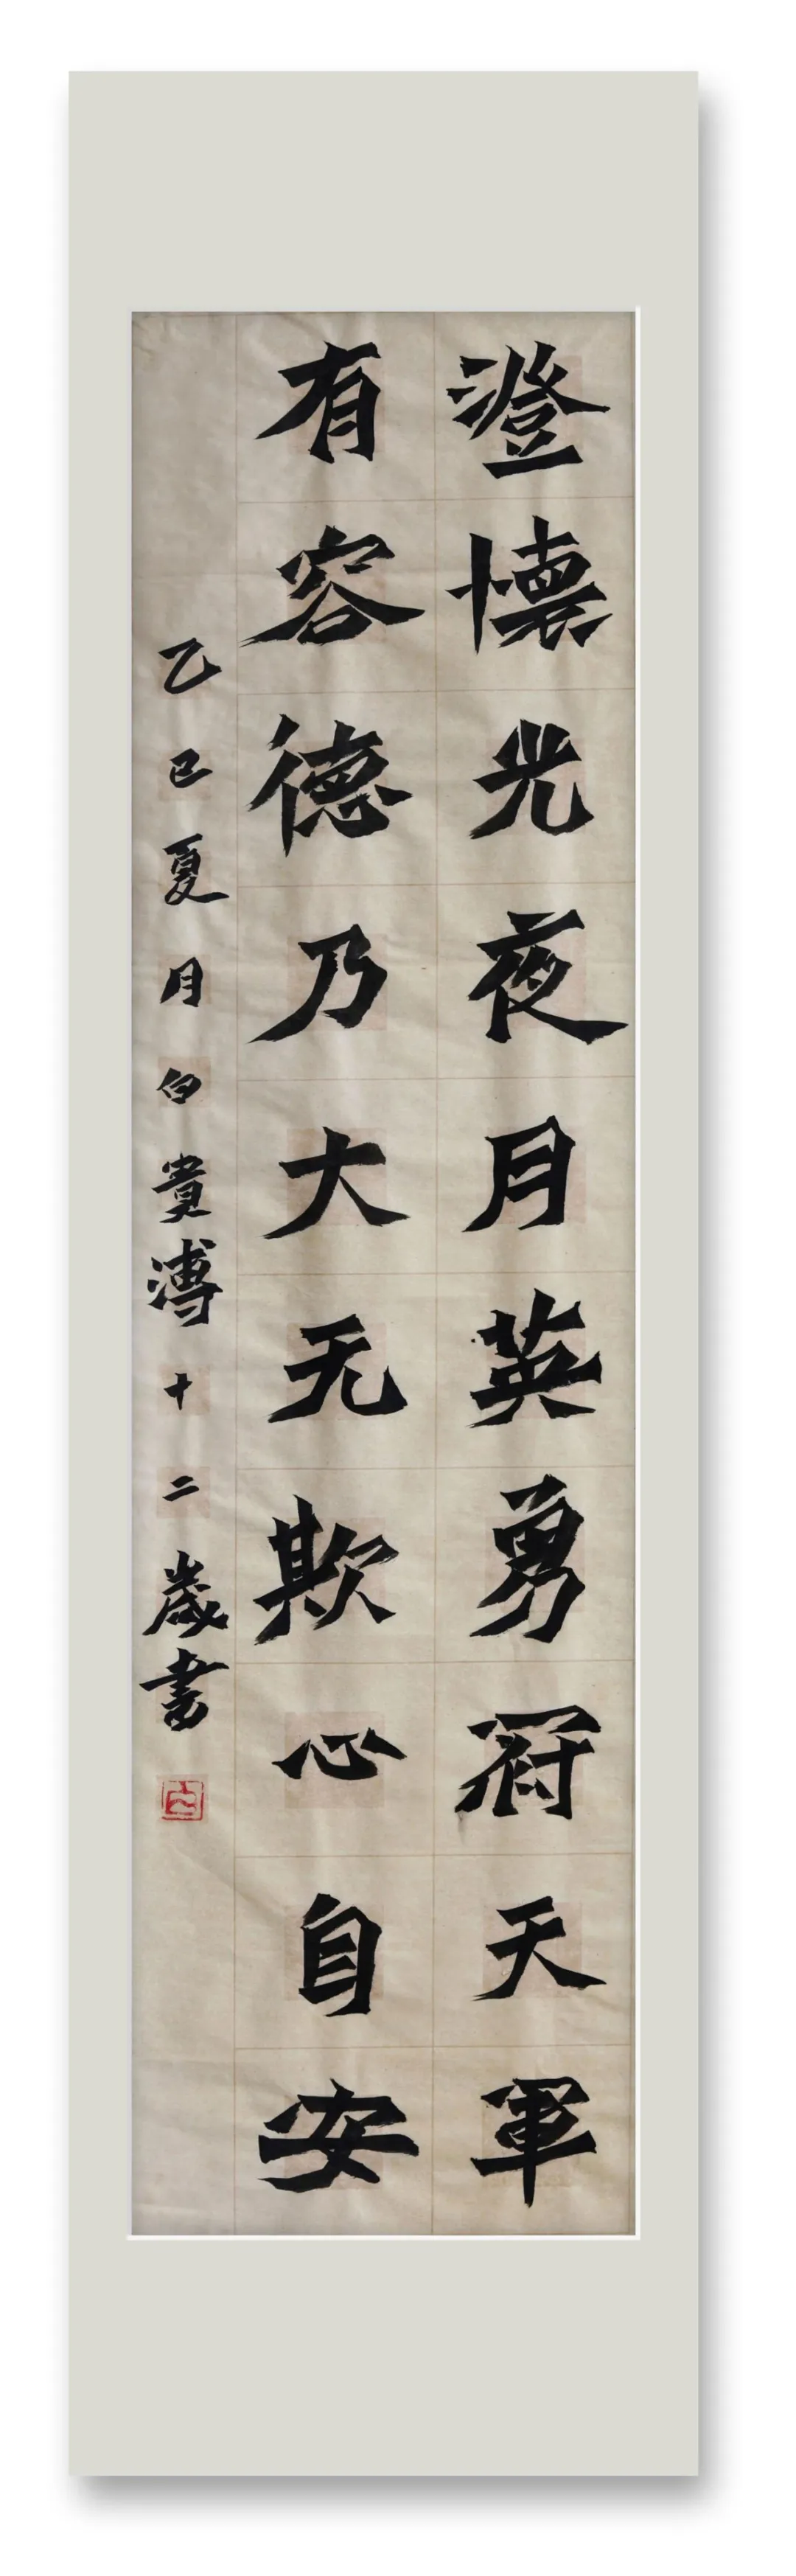 澄懷光夜月英勇冠天軍
有容德乃大无欺心自安
乙巳夏月白溥十二歲書